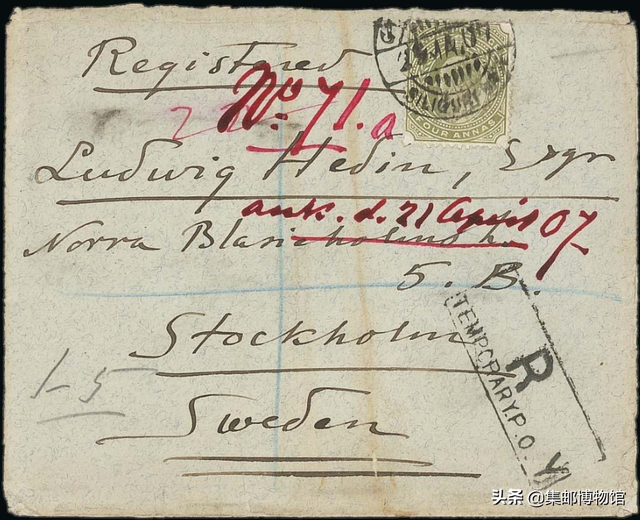 Registered
No. 71. a
FOUR ANNAS
Ludwig Hedin, Esqr
ank. d. 21 April 07.
Norra Blasieholmsh.
5. B.
Stockholm
Sweden
R
TEMPORARY. P.O.
1-5
头条 @集邮博物馆